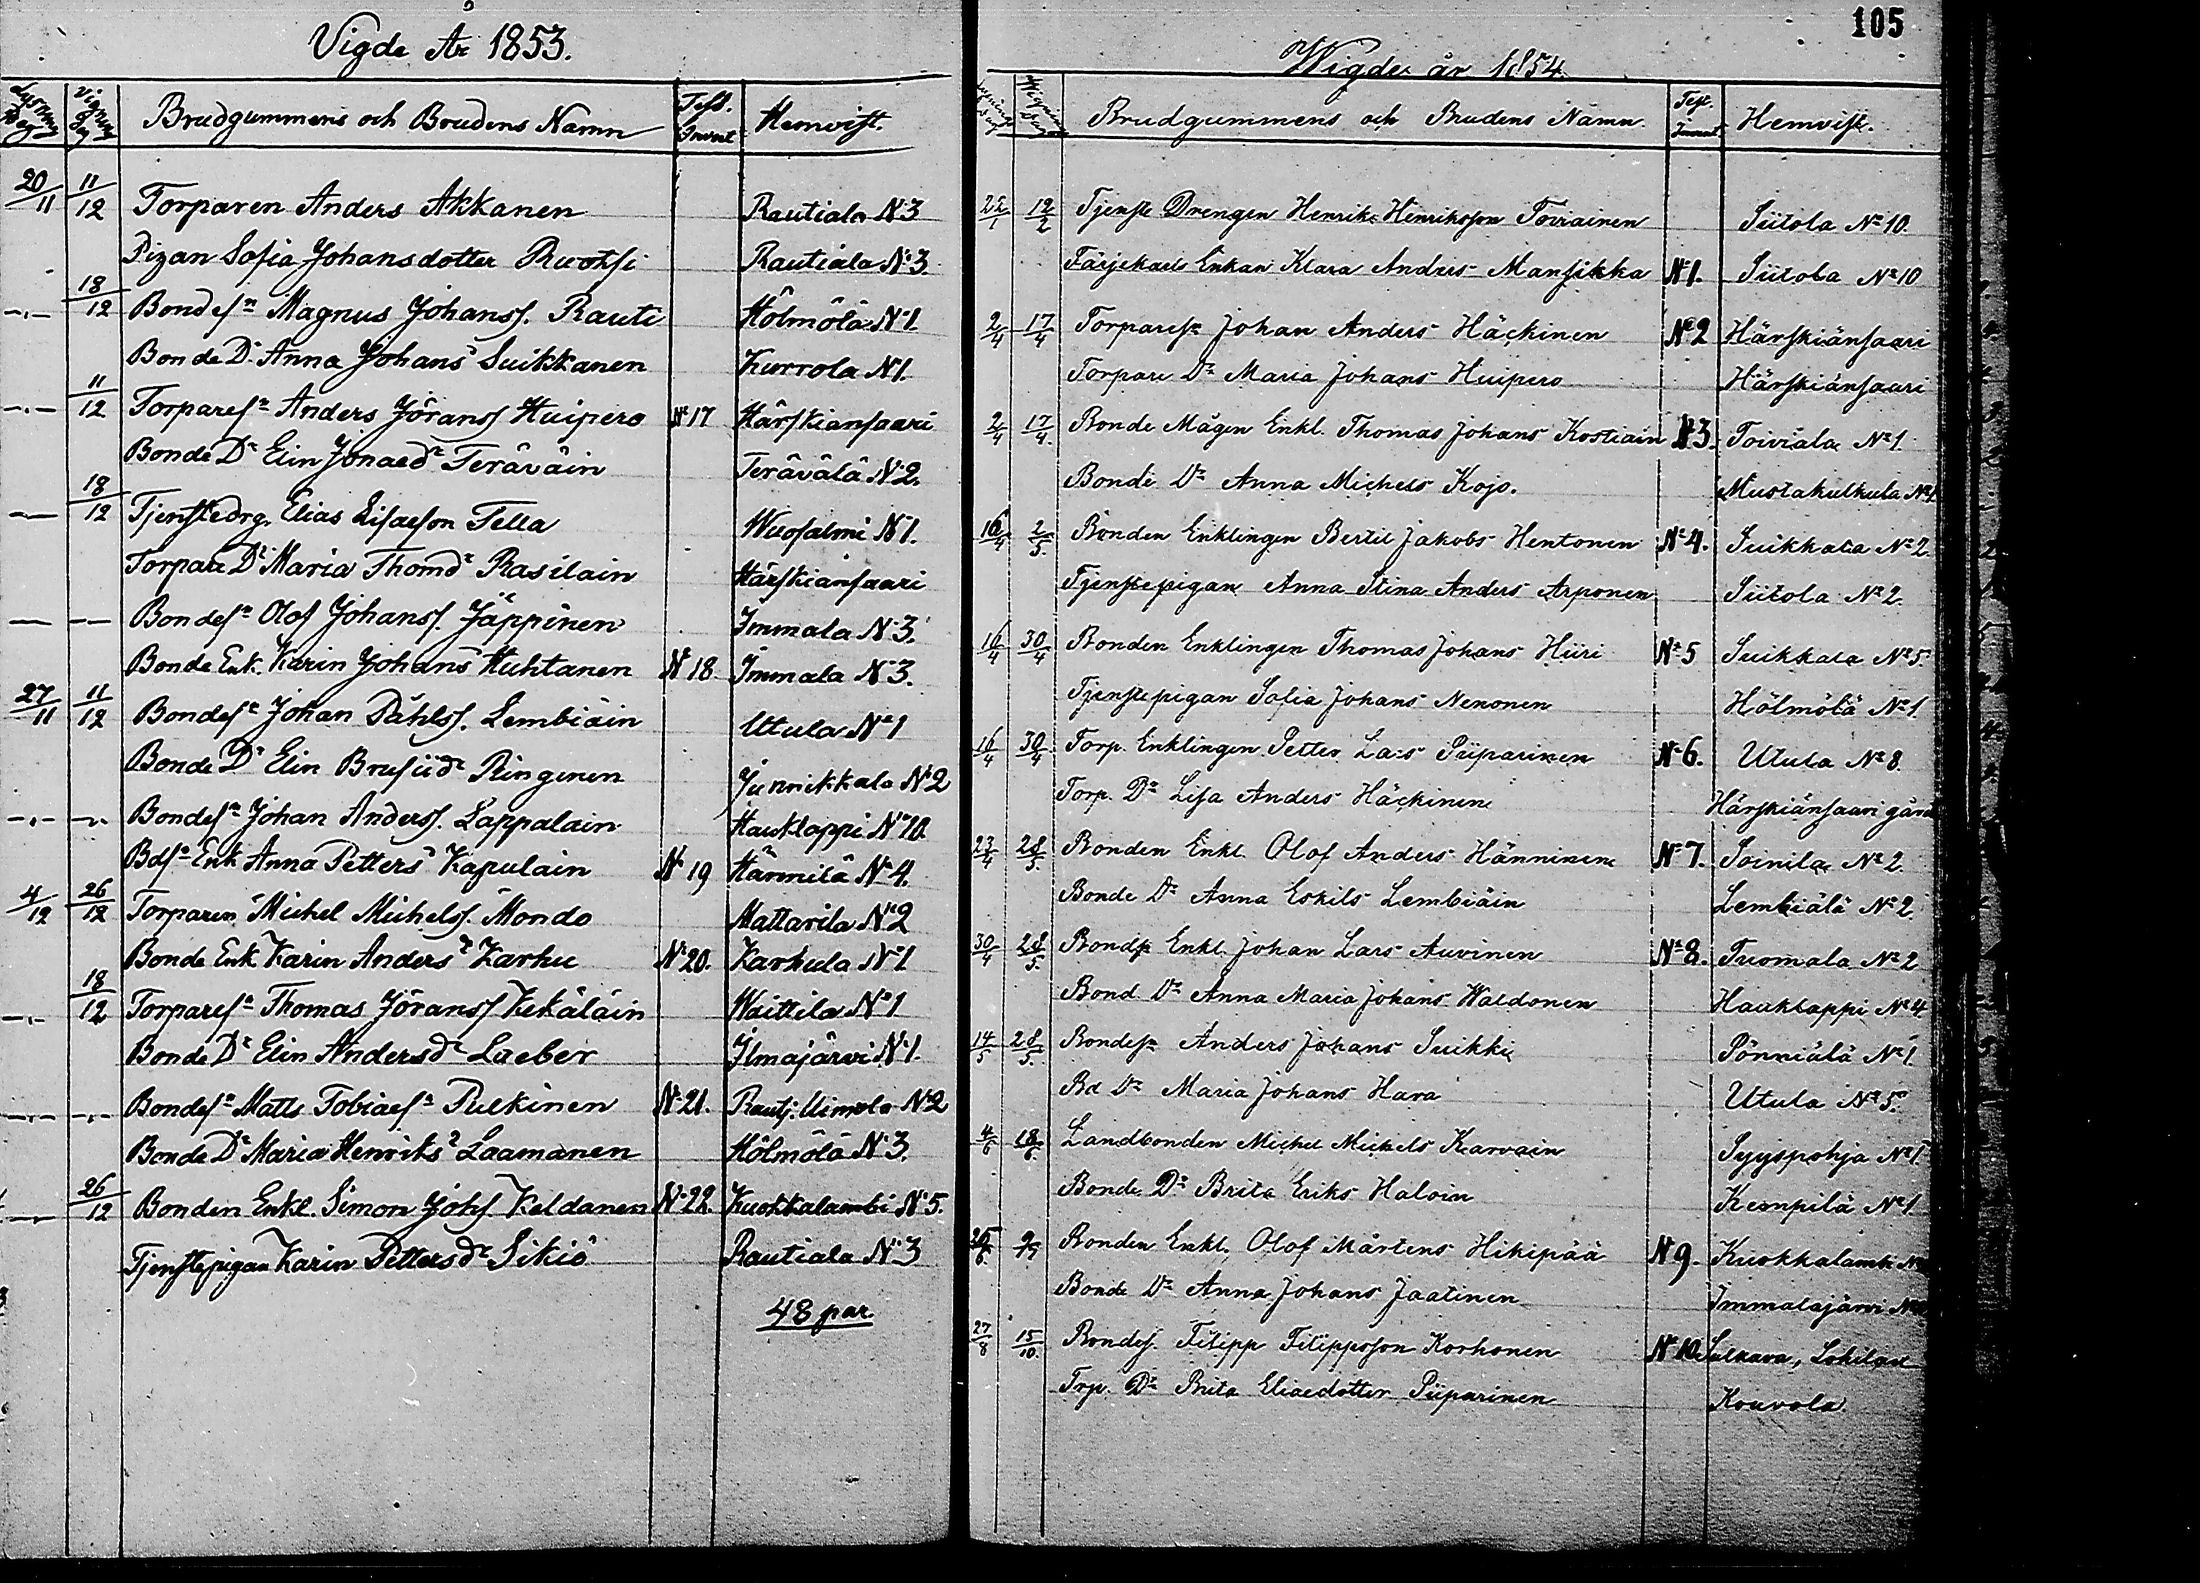 Vigde År 1853.
Lysnings Dag Vignings Dag Brudgummens och Brudens Namn Test. Invent. Hemvist.
20/11 11/12 Torparen Anders Akkanen Rautiala N:3
Pigan Sofia Johansdotter Ruotsi Rautiala N:3
-"- 18/12 Bondesn Magnus Johanss. Rauti Hölmölä N:1.
Bonde Dr Anna Johansdr Suikkanen Kurrola N:1.
-"- 11/12 Torparesn Anders Jöranss Huipero No 17 Härskiänsaari
Bonde Dr Elin Jonaedr Teräväin Terävälä N:2.
— 18/12 Tjenstedrg. Elias Eliaeson Tella Wuosalmi N:1.
Torpare Dr Maria Thomdr Rasilain Härskiänsaari
— — Bondesn Olof Johanss. Jäppinen Immala N:3.
Bonde Enk. Karin Johansdr Huhtanen N:18. Immala N:3.
27/11 11/12 Bondesn Johan Påhlss. Lembiäin Utula No 1
Bonde Dr Elin Brusiidr Ringinen Junnikkala N:2
-"- -"- Bondesn Johan Anderss. Lappalain Hauklappi N:10.
Bdsn Enk Anna Pettersdr Kapulain N:19 Härmälä N:4.
4/12 26/12 Torparen Michel Michelss. Mondo Mattarila N:2
Bonde Enk Karin Andersdr Karhu N:20. Karhula N:1
-"- 18/12 Torparesn Thomas Jöranss Kekäläin Waittila No 1
Bonde Dr Elin Andersdr Laeber Ilmajärvi N:1.
-"- -"- Bondesn Matts Tobiaesn Pulkinen N:21. Rautj. Uimola N:2
Bonde Dr Maria Henriksdr Laamanen Hölmölä N:3.
— 26/12 Bonden Enkl. Simon Johs. Keldanen N:22. Kuokkalambi N:5.
Tjenstepigan Karin Pettersdr Sikiö Rautiala N:3
48 par.
105
Wigde år 1854
Lysnings Dag Wignings Dag Brudgummens och Brudens Namn. Test. Invent. Hemvist.
22/1 12/2 Tjenste Drengen Henrik Henriksson Toviainen Siitola No 10.
Färjekarls Enkan Klara Anders Mansikka No 1. Siitola No 10
2/4 17/4 Torparesn Johan Anders Häckinen No 2 Härskiänsaari
Torpare Dr Maria Johans Huipero Härskiänsaari
2/4 17/4. Bonde Mågen Enkl. Thomas Johans Kostiain No 3. Toiviala No 1.
Bonde Dr Anna Michels Kojo. Mustakulkula No 1
16/4 2/5. Bonden Enklingen Bertil Jakobs Hentonen No 4. Suikkala No 2.
Tjenstepigan Anna Stina Anders Arponen Siitola No 2.
16/4 30/4 Bonden Enklingen Thomas Johans Hiiri No 5 Suikkala No 5.
Tjenstepigan Sofia Johans Nenonen Hölmölä No 1.
16/4 30/4 Torp. Enklingen Petter Lars Piiparinen No 6. Utula No 8.
Torp. Dr Lisa Anders Häckinen Härskiänsaari gård
23/4 28/5. Bonden Enkl. Olof Anders Hänninen No 7. Soinila No 2.
Bonde Dr Anna Eskils Lembiäin Lembiälä No 2
30/4 28/5. Bondsn Enkl. Johan Lars Auvinen No 8. Tuomala No 2
Bond. Dr Anna Maria Johans Waldonen Hauklappi No 4
14/5 28/5. Bondesn Anders Johans Suikki Pönniälä No 1.
Bd Dr Maria Johans Hara Utula No 5.
4/6 18/6 Landbonden Michel Michels Karvain Syyspohja No 1.
Bonde Dr Brita Eriks Haloin Kempilä No 1
25/6. 9/7 Bonden Enkl. Olof Mårtens Hikipää No 9. Kuokkalambi No
Bonde Dr Anna Johans Jaatinen Immalajärvi No
27/8 15/10. Bondes. Filipp Filippsson Korhonen No 10. Sulkava, Lohilax
Trp. Dr Brita Eliaedotter Piiparinen Kouvola.